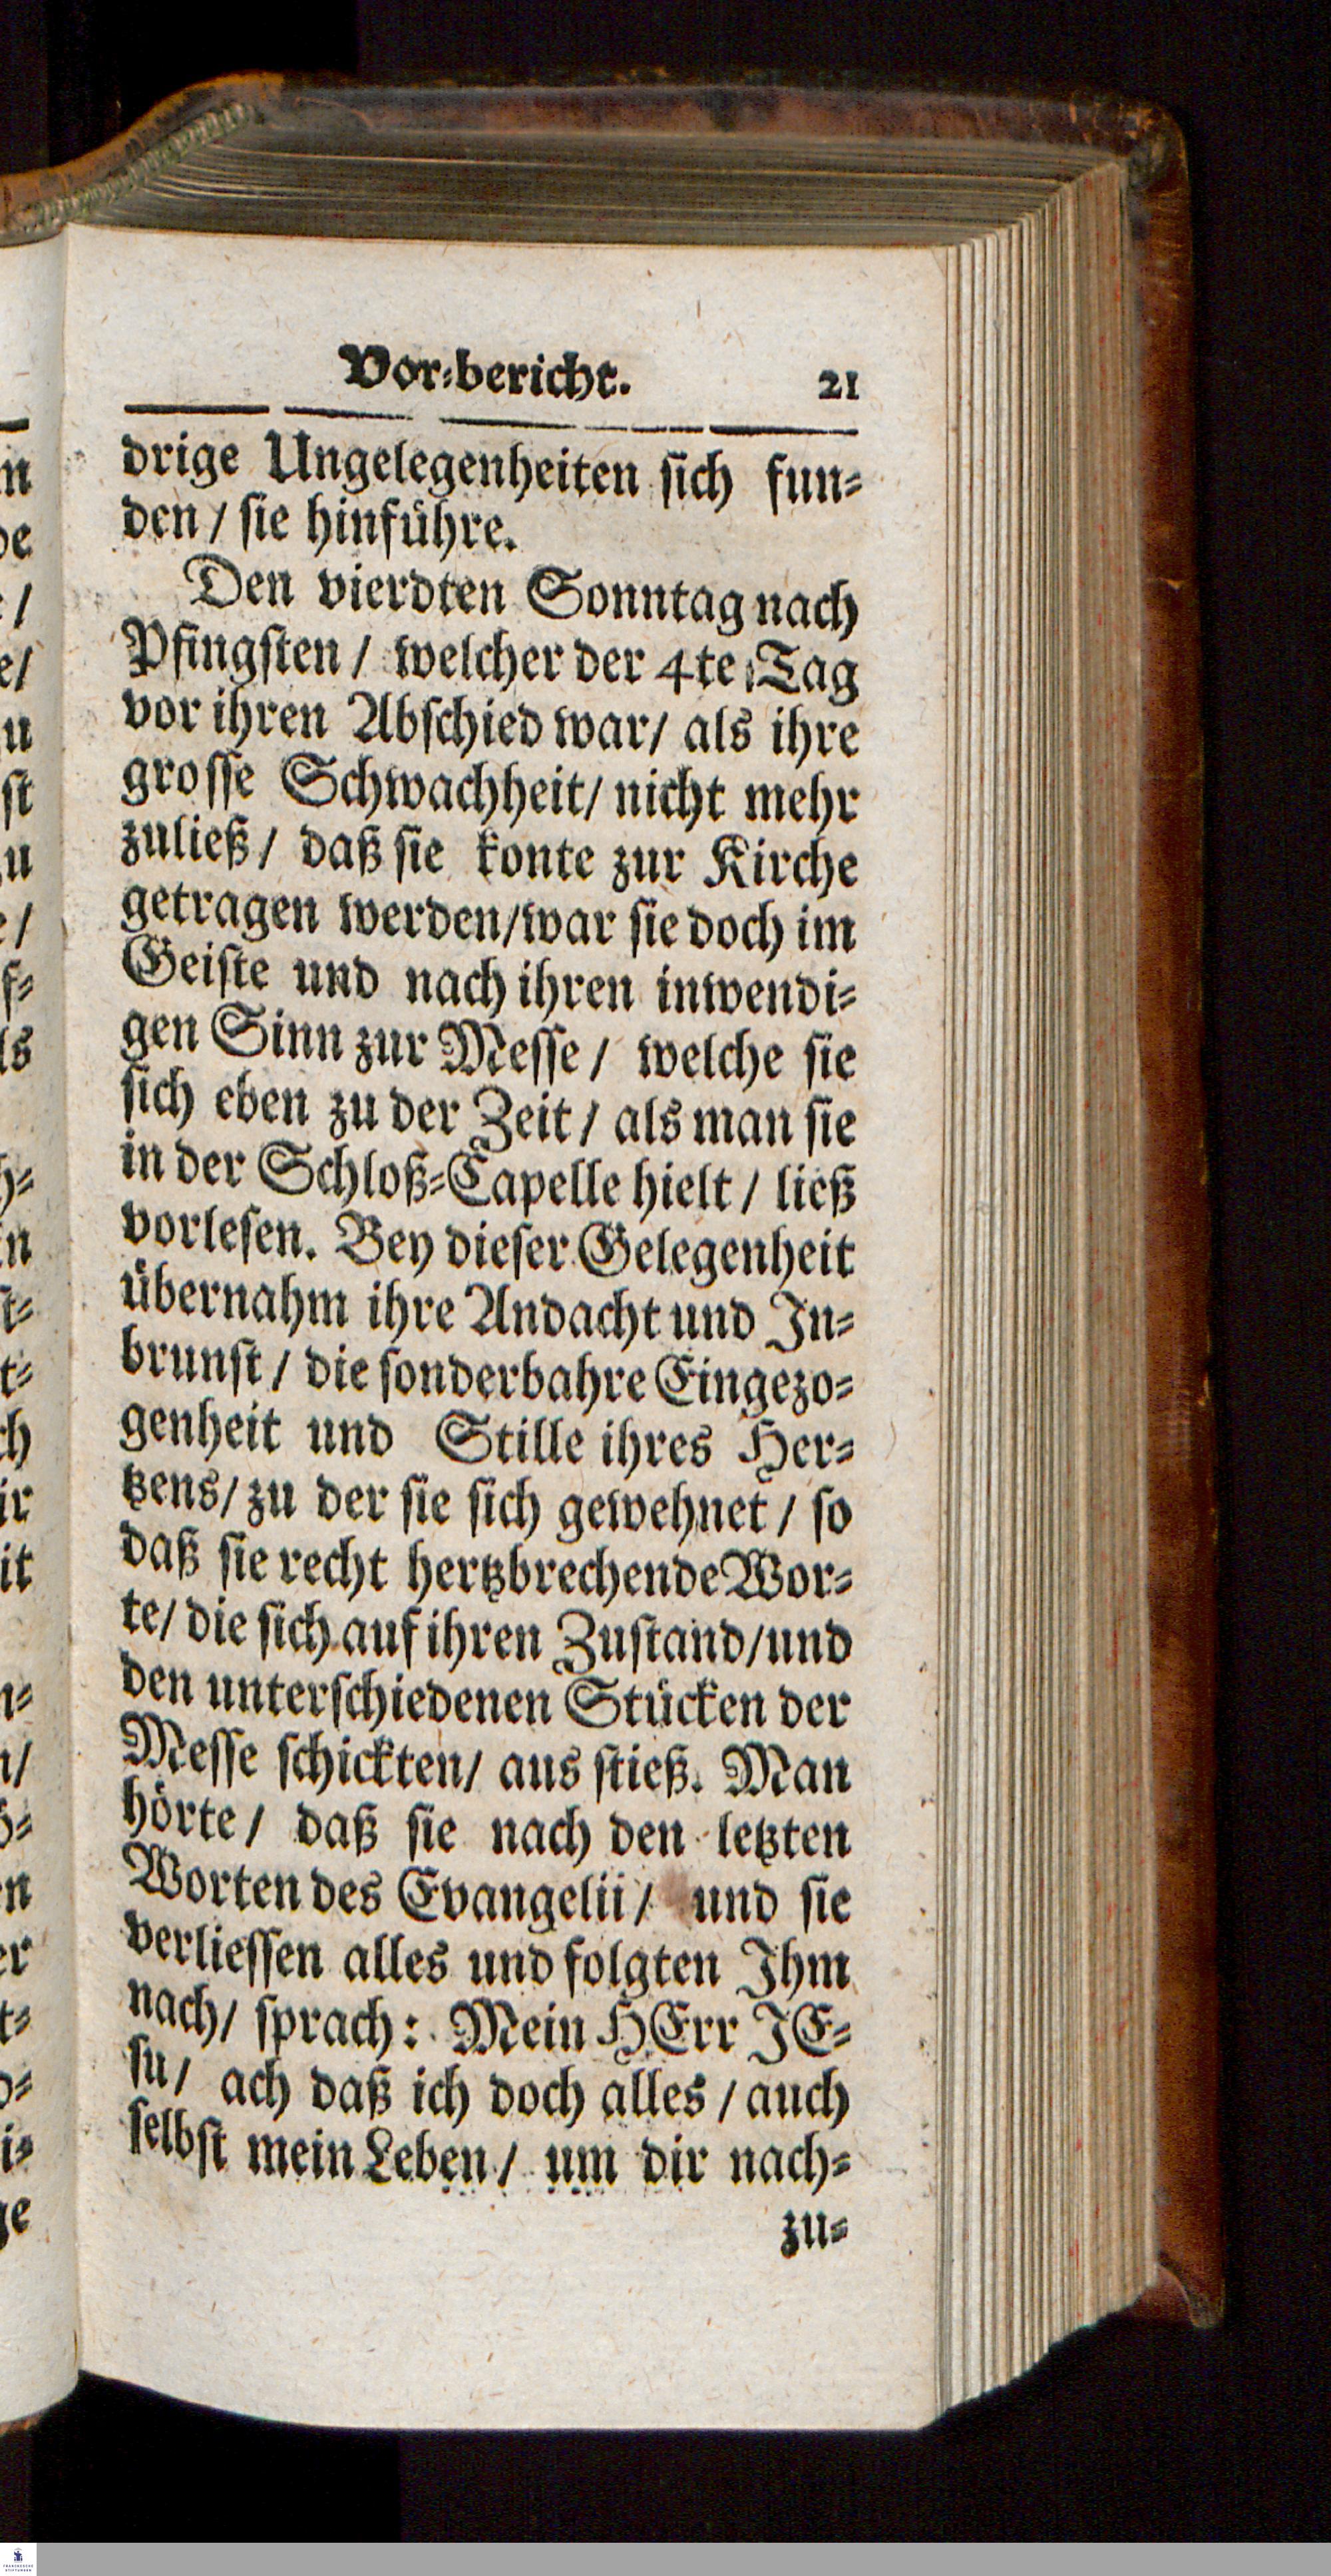 Vor⸗bericht. 21
drige Ungelegenheiten sich fun⸗
den / sie hinführe.
Den vierdten Sonntag nach
Pfingsten / welcher der 4te Tag
vor ihren Abschied war / als ihre
grosse Schwachheit / nicht mehr
zuließ / daß sie konte zur Kirche
getragen werden / war sie doch im
Geiste und nach ihren inwendi⸗
gen Sinn zur Messe / welche sie
sich eben zu der Zeit / als man sie
in der Schloß⸗Capelle hielt / ließ
vorlesen. Bey dieser Gelegenheit
übernahm ihre Andacht und In⸗
brunst / die sonderbahre Eingezo⸗
genheit und Stille ihres Her⸗
tzens / zu der sie sich gewehnet / so
daß sie recht hertzbrechende Wor⸗
te / die sich auf ihren Zustand / und
den unterschiedenen Stücken der
Messe schickten / aus stieß. Man
hörte / daß sie nach den letzten
Worten des Evangelii / und sie
verliessen alles und folgten Ihm
nach / sprach: Mein HErr JE⸗
su / ach daß ich doch alles / auch
selbst mein Leben / um dir nach⸗
zu⸗